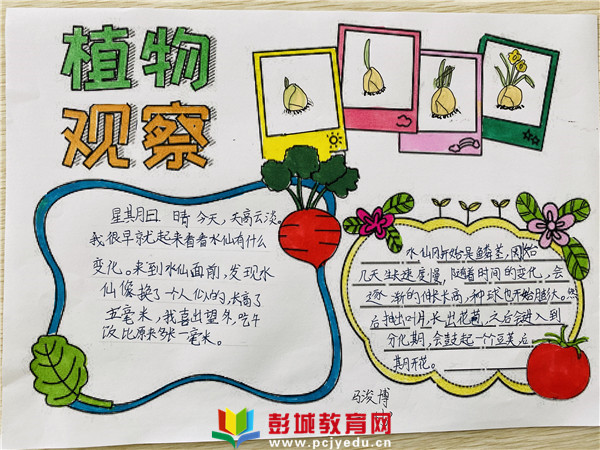 植物
观察
星期日 晴 今天,天高云淡。
我很早就起来看看水仙有什么
变化。来到水仙面前,发现水
仙像换了一个人似的,长高了
五毫米,我喜出望外,吃午
饭比原来多一毫米。
水仙刚开始是鳞茎,刚开始
几天生长速度慢,随着时间的变化,会
逐渐的伸长长高,种球也开始膨大。然
后抽出叶片,长出花葡,之后会进入到
分化期,会鼓起一个豆荚后
期开花。
马浚博
彭城教育网
www.pcjyedu.cn